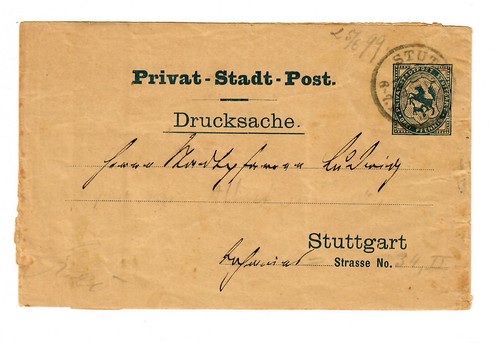 2 5/6 99
STUT
Privat-Stadt-Post.
Drucksache.
Herrn Stadtpfarrer Ludwig
Stuttgart
Strasse No. 34 II